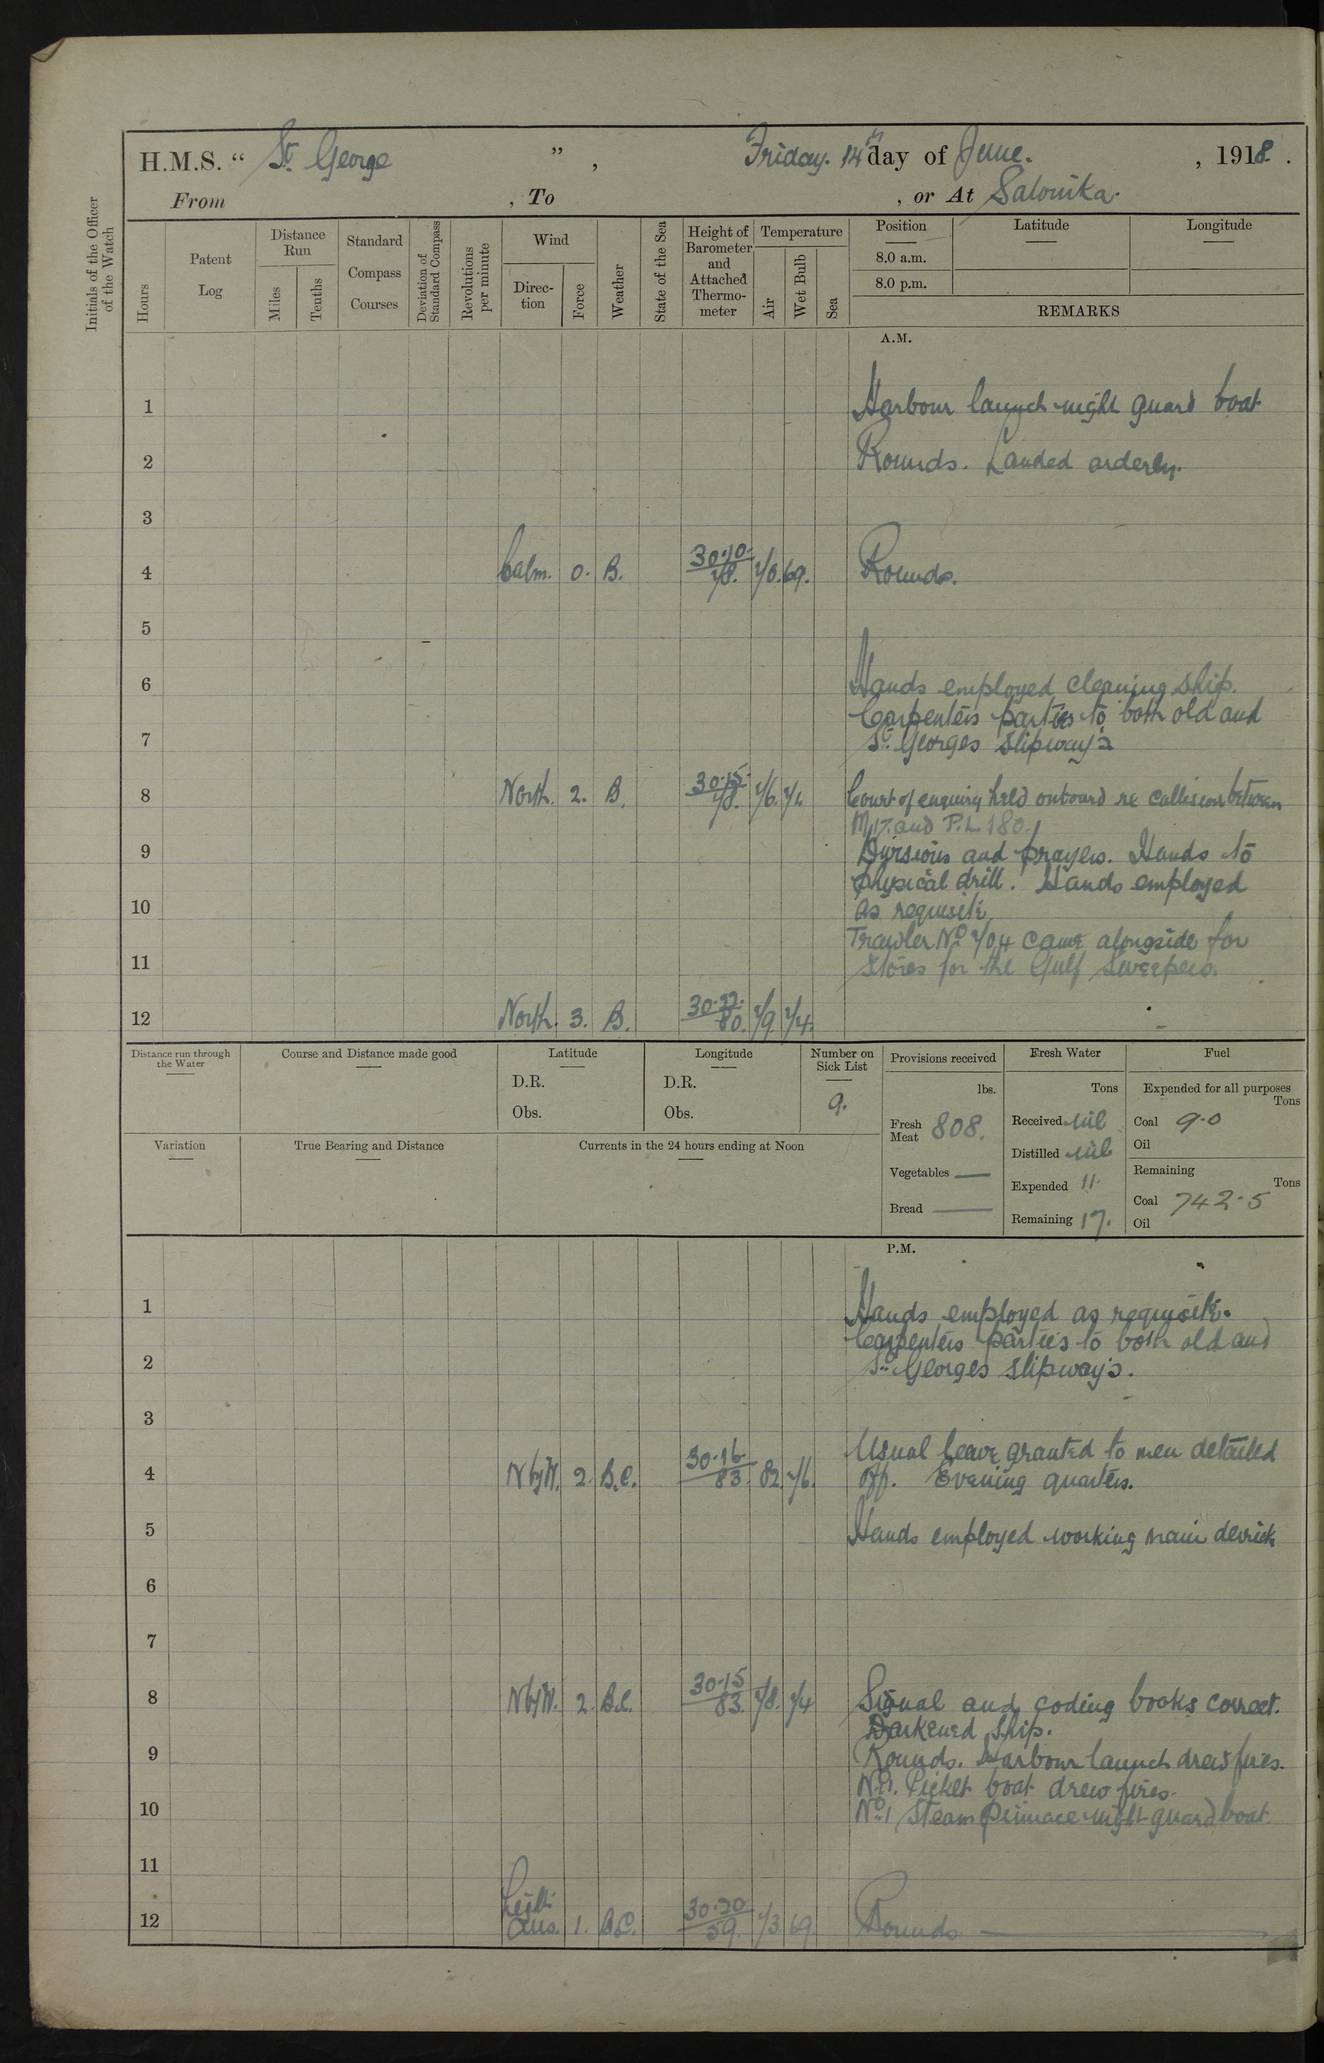 H.M.S. " St. George " , Friday. 14th day of June. , 1918.
From , To , or At Salonika.
Initials of the Officer of the Watch
Hours
Patent Log
Distance Run
Miles
Tenths
Standard Compass Courses
Deviation of Standard Compass
Revolutions per minute
Wind
Direction
Force
Weather
State of the Sea
Height of Barometer and Attached Thermometer
Temperature
Air
Wet Bulb
Sea
Position
8.0 a.m.
8.0 p.m.
Latitude
Longitude
REMARKS
A.M.
1 Harbour launch night guard boat
2 Rounds. Landed orderly.
3
4 Calm. 0. B. 30.10. 78. 70. 69. Rounds.
5
6 Hands employed cleaning ship.
Carpenters parties to both old and
7 St. Georges slipway's
8 North. 2. B. 30.15. 78. 76. 72 Court of enquiry held onboard re collision between
M17. and P.L 180.
9 Divisions and prayers. Hands to
physical drill. Hands employed
10 as requisite
Trawler No 704 came alongside for
11 stores for the Gulf Sweepers.
12 North. 3. B. 30.22. 80. 79. 74.
Distance run through the Water
Course and Distance made good
Latitude
D.R.
Obs.
Longitude
D.R.
Obs.
Number on Sick List
9.
Provisions received
lbs.
Fresh Meat 808.
Vegetables —
Bread —
Fresh Water
Tons
Received nil
Distilled nil
Expended 11.
Remaining 17.
Fuel
Expended for all purposes
Tons
Coal 9.0
Oil
Remaining
Tons
Coal 742.5
Oil
Variation
True Bearing and Distance
Currents in the 24 hours ending at Noon
P.M.
1 Hands employed as requisite.
Carpenters parties to both old and
2 St. Georges slipway's.
3
Usual leave granted to men detailed
4 N by W. 2. B.C. 30.16 83. 82. 76. off. Evening quarters.
5 Hands employed working main derrick
6
7
8 N by W. 2. B.C. 30.15 83. 78. 74 Signal and coding books correct.
Darkened ship.
9 Rounds. Harbour launch drew fires.
No 1. Picket boat drew fires.
10 No 1 Steam pinnace night guard boat.
11
12 Light airs. 1. B.C. 30.20 59. 73. 69. Rounds. —